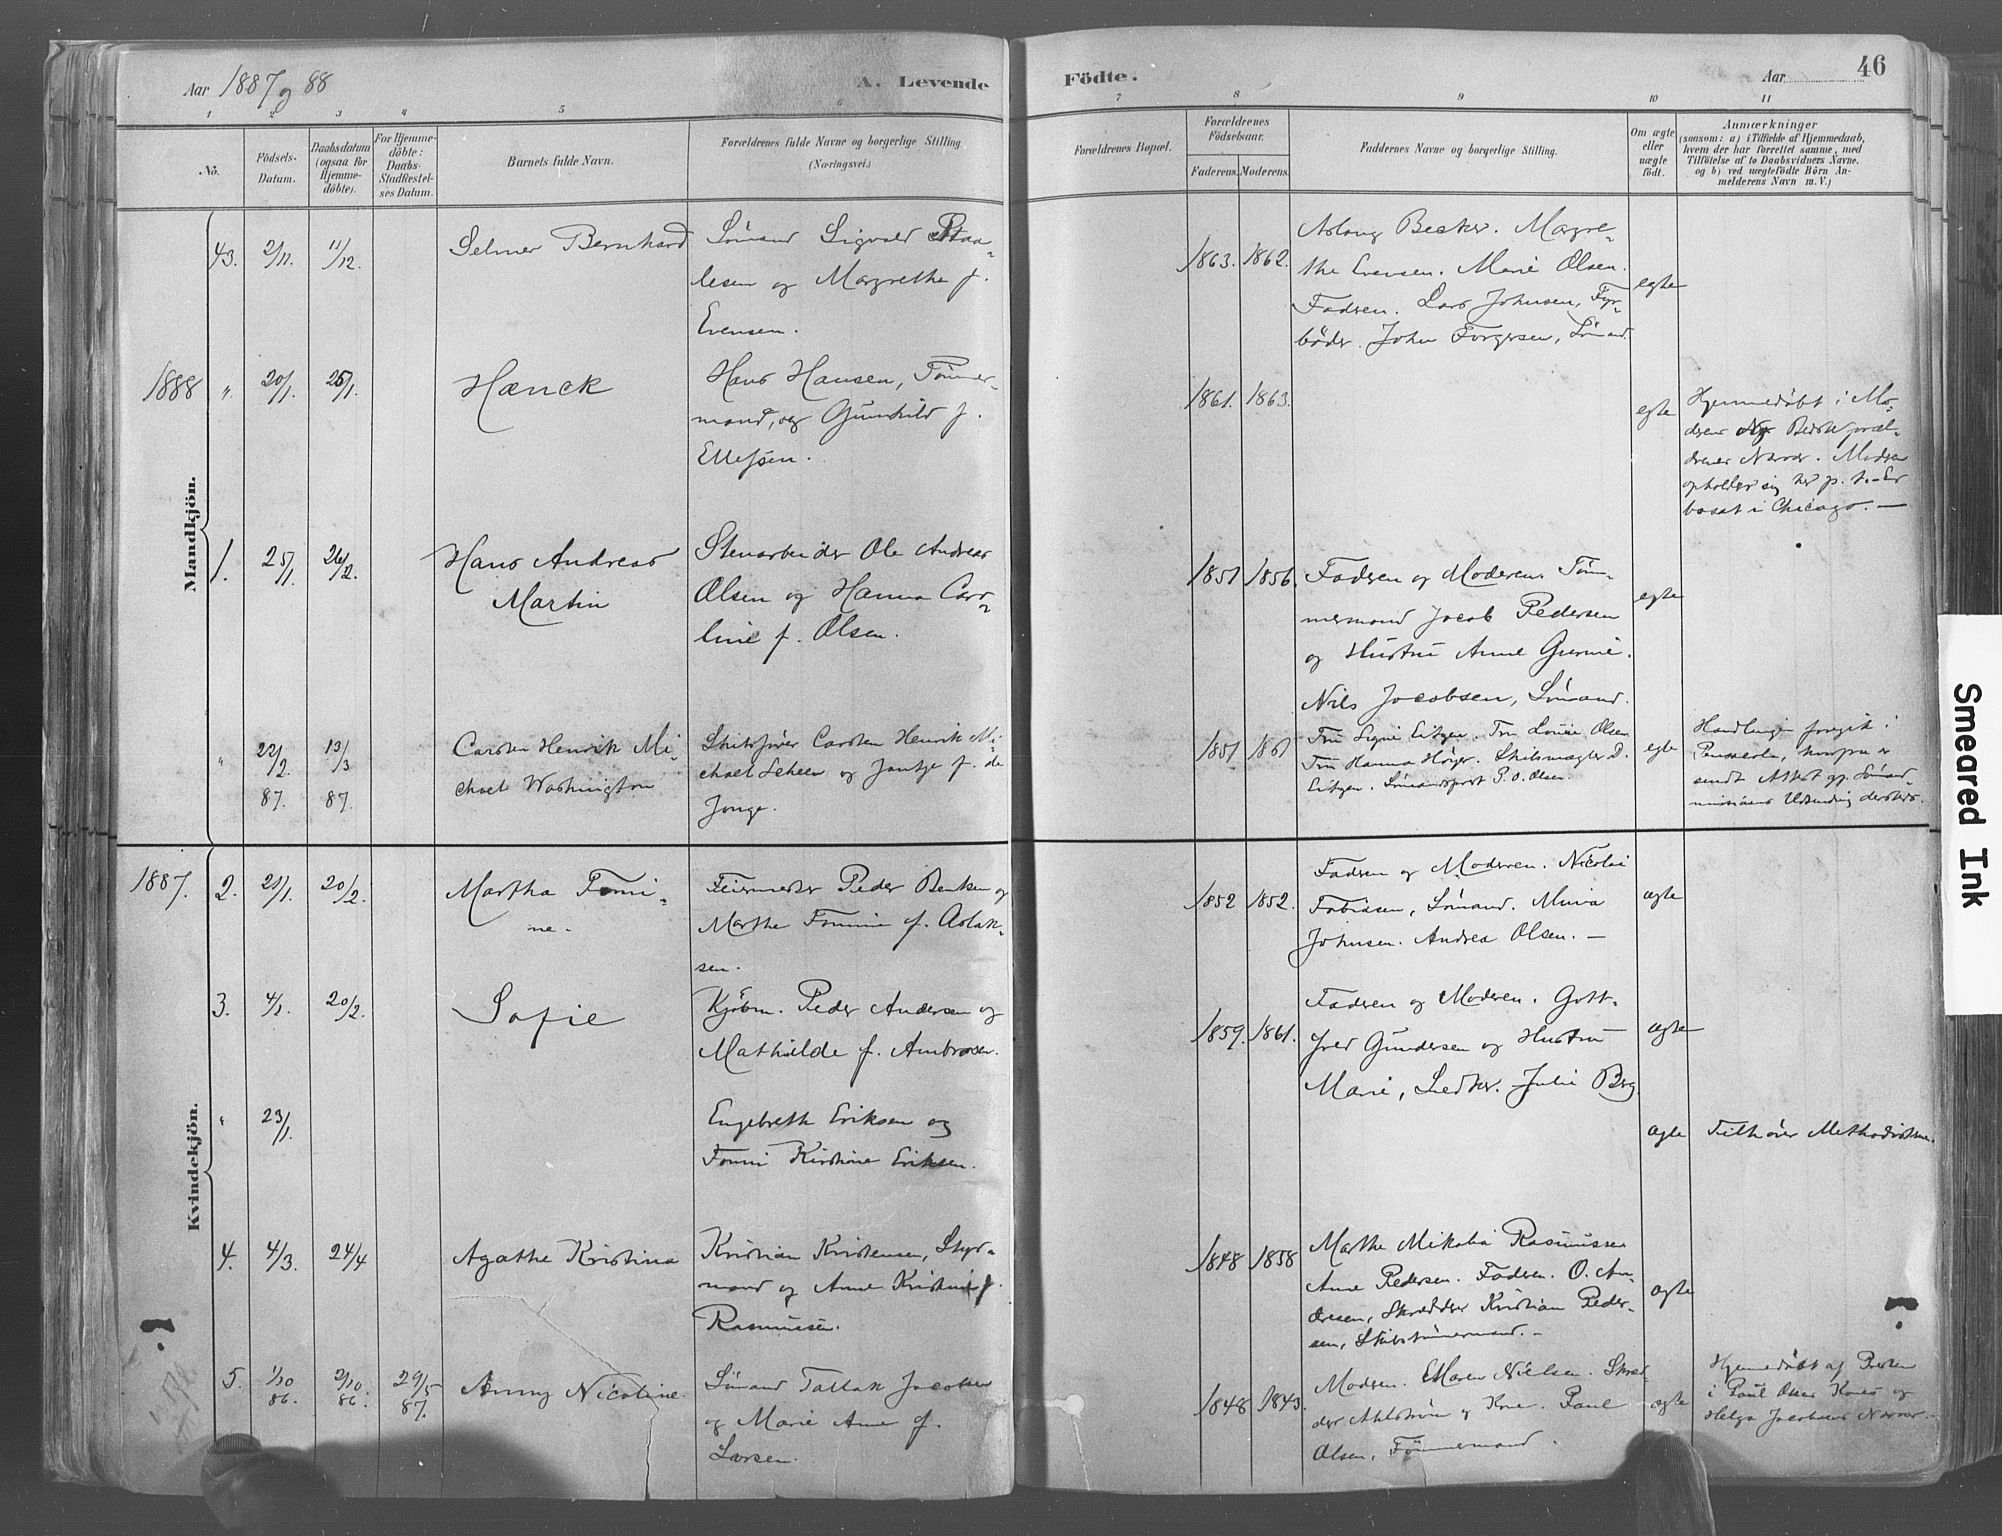 Aar 1887 og 88
A. Levende Födte.
Aar
46
1 2 3 4 5 6 7 8 9 10 11
No.
Födsels-Datum.
Daabsdatum (ogsaa for Hjemmedöbte).
For Hjemmedöbte: Daabs-Stadfæstelses Datum.
Barnets fulde Navn.
Forældrenes fulde Navne og borgerlige Stilling (Næringsvei.)
Forældrenes Bopæl.
Forældrenes Födselsaar.
Faderens. Moderens.
Faddernes Navne og borgerlige Stilling.
Om ægte eller uægte födt.
Anmærkninger
(saasom: a) i Tilfælde af Hjemmedaab,
hvem der har forrettet samme, med
Tilföielse af to Daabsvidners Navne.
og b) ved uægtefödte Börn An-
melderens Navn m.V.)
Mandkjön.
43. 2/11. 11/12. Selmer Bernhard
Sömand Sigvald Staa-
lesen og Margrethe f.
Evensen.
1863. 1862.
Aslaug Becker. Magre-
the Evensen. Marie Olsen.
Faderen. Lars Johnsen, Fyr-
böder. John Torgersen, Sömand.
egte
1888 " 20/1. 25/1. Hænck
Hans Hansen, Tömmer-
mand, og Gunhild f.
Ellefsen.
1861. 1863.
egte
Hjemmedöbt i Mo-
derens Bedsteforæl-
dres Nærvær. Moderen
opholder sig her p. t. - Er
bosat i Chicago. —
1. 25/1. 26/2. Hans Andreas
Martin
Stenarbeider Ole Andreas
Olsen og Hanna Caro-
line f. Olsen.
1851 1856.
Faderen og Moderen. Töm-
mermand Jacob Pedersen
og Hustru Anne Gurine.
Nils Jacobsen, Sömand.
egte
" 22/2. 87. 13/3 87. Carsten Henrik Mi-
chael Washington
Skibsförer Carsten Henrik Mi-
chael Scheen og Jantje f. de
Jonge.
1851 1861
Fru Signe Eitzen. Fru Louise Olsen
Fru Hanna Höyer. Skibsmægler D.
Eitzen. Sömandsprest P. O. Olsen.
egte
Handlingen foregik i
Pensacola, hvorpaa er
sendt Attest af Sömands-
missionens Udsending dersteds.
Kvindekjön.
1887. 2. 21/1. 20/2. Martha Tomi-
ne.
Feiermester Peder Bentsen og
Marthe Tomine f. Aslak-
sen.
1852 1852.
Faderen og Moderen. Nicolai
Tobiasen, Sömand. Mina
Johnsen. Andrea Olsen. —
ægte
3. 4/1. 20/2. Sofie
Kjöbm. Peder Andersen og
Mathilde f. Ambrosen.
1859. 1861.
Faderen og Moderen. Gott-
fred Gundersen og Hustru
Marie, Ledker. Julie Berg.
ægte
" 23/1.
Engebreth Eriksen og
Tomi Kirstine Eriksen.
ægte
Tilhörer Methodisterne.
4. 4/3. 24/4 Agathe Kristina
Kristian Kristensen, Styr-
mand og Anne Kristine f.
Rasmussen.
1848 1858
Marthe Mikalia Rasmussen
Anne Pedersen. Faderen. O. An-
dresen, Skrædder Kristian Peder-
sen, Skibstömmermand. -
ægte
5. 1/10 86. 2/10. 86. 29/5 87. Anny Nicoline.
Sömand Tallak Jacobsen
og Marie Anne f.
Larsen.
1848 1843.
Moderen. Maren Nielsen. Skræd-
der Ahlström og Kone. Paul
Olsen, Tömmermand.
ægte
Hjemmedöbt af Presten
i Paul Olsens Kones og
Helga Jacobsens Nærvær.
Smeared Ink